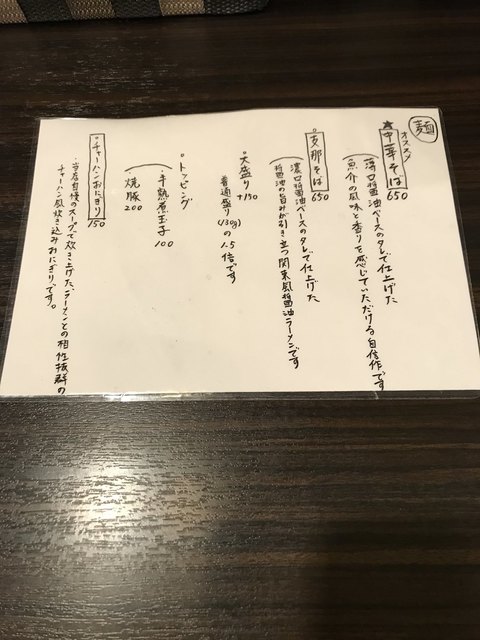 麺
オススメ
★中華そば
650
薄口醤油ベースのタレで仕上げた
魚介の風味と香りを感じていただける自信作です
°支那そば
650
濃口醤油ベースのタレで仕上げた
醤油の旨みが引き立つ関東風醤油ラーメンです
°大盛り
+150
普通盛り(130g)の1.5倍です
°トッピング
半熟煮玉子
100
焼豚
200
°チャーハンおにぎり
150
当店自慢のスープで炊き上げた、ラーメンとの相性抜群の
チャーハン風炊き込みおにぎりです。